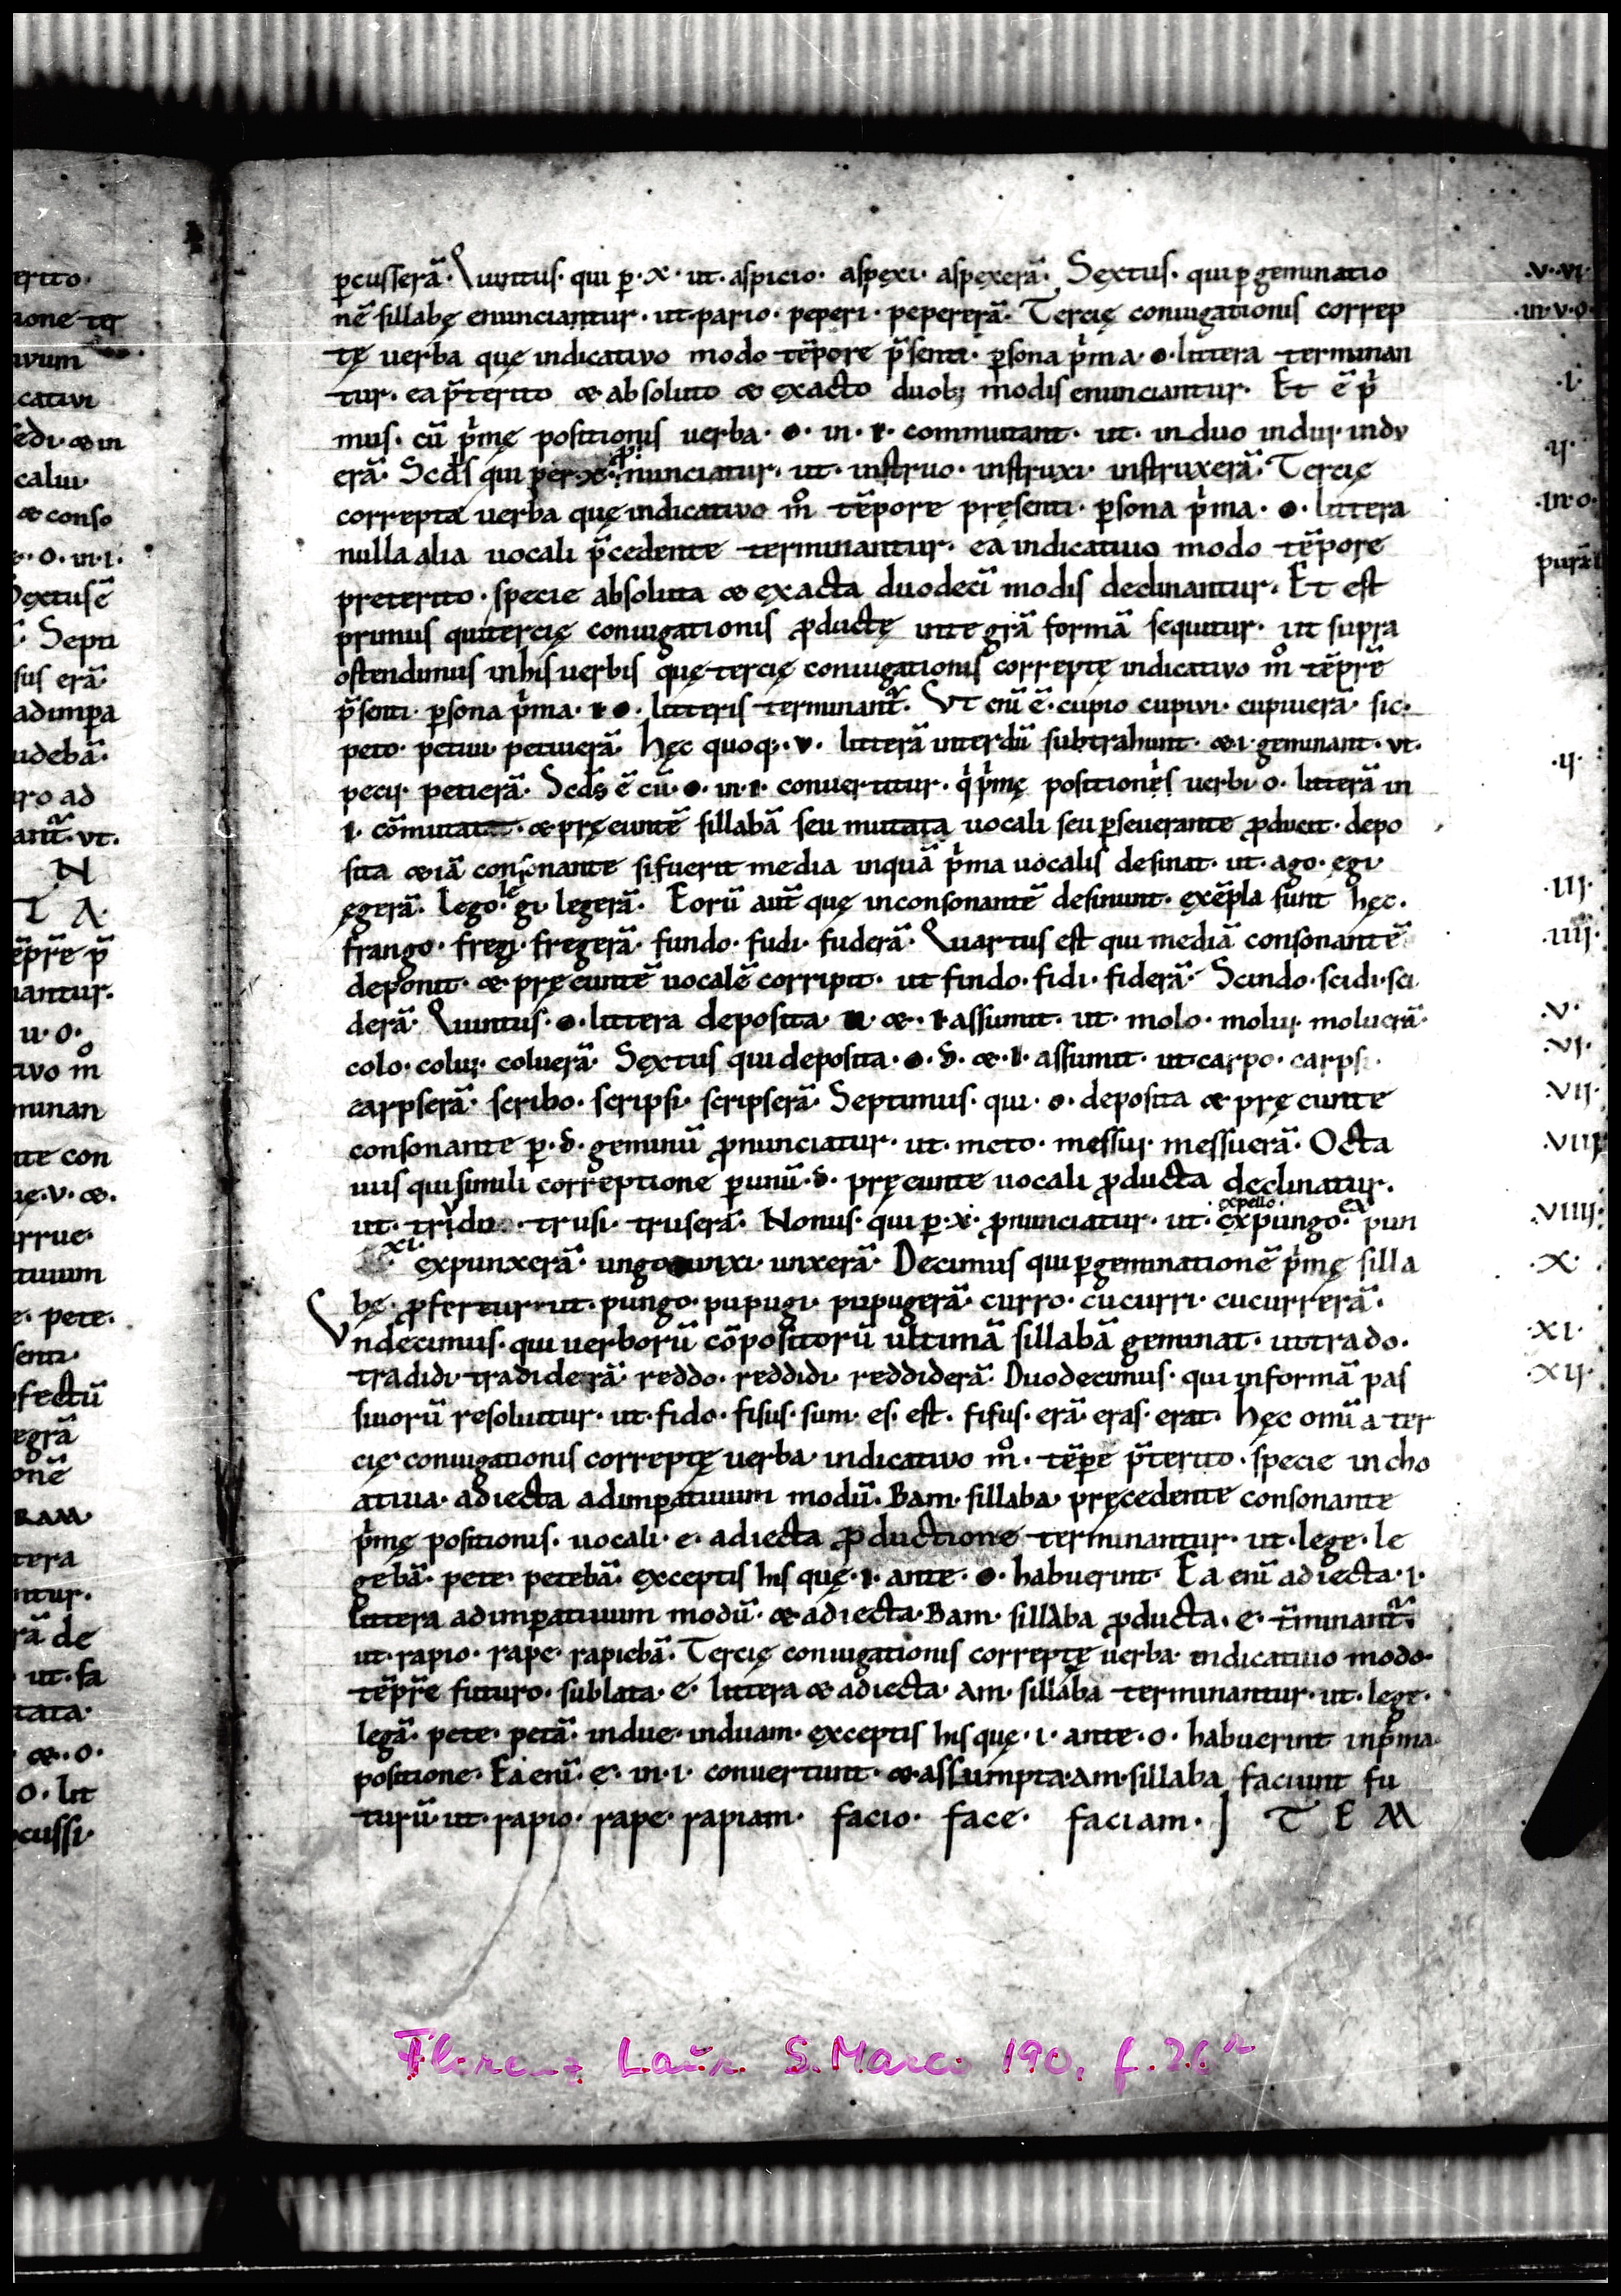 ꝑcusserā. Quintus. qui ꝑ. x. ut. aspicio. aspexi. aspexerā. Sextus. qui ꝑ geminatio
nē sillabę enunciantur. ut. pario. peperi. pepererā. Tercię coniugationis correp
tę uerba quę indicatiuo modo tēpore p̄senti. ꝑsona p̍ma. o. littera terminan
tur. ea p̄terito & absoluto & exacto duobꝫ modis enunciantur. Et ē p̍
mus. cū p̍mę positionis uerba. o. in. i. commutant. ut. induo indui. indu
erā. Scd̄s qui per. x. ꝓnunciatur. ut. instruo. instruxi. instruxerā. Tercię
correpta uerba quę indicatiuo m̊ tēpore pręsenti. ꝑsona p̍ma. o. littera
nulla alia uocali p̄cedente terminantur. ea indicatiuo modo tēpore
preterito. specie absoluta & exacta duodecī modis declinantur. Et est
primus qui tercię coniugationis ꝓductę integrā formā sequitur. ut supra
ostendimus in his uerbis quę tercię coniugationis correptę indicatiuo m̊ tēpr̄e
p̄senti. ꝑsona p̍ma. i o. litteris terminant̄. Vt enī ē. cupio cupiui. cupiuerā. sic.
peto. petiui petiuerā. hęc quoq;. v. litterā interdū subtrahunt. & i. geminant. vt.
petij. petierā. Scd̄s ē cū. o. in. i. conuertitur. q̍ p̍mę positionis uerbi o. litterā in
i. cōmutat. & pręeuntē sillabā seu mutata uocali seu ꝑseuerante ꝓducit. depo
sita & iā consonante si fuerit media in quā p̍ma uocalis desinat. ut. ago. egi
egerā. Lego. legi legerā. Eorū aut̄ quę in consonantē desinunt. exēpla sunt hęc.
frango. fregi. fregerā. fundo. fudi. fuderā. Quartus est qui mediā consonantē
deponit. & pręeuntē uocalē corripit. ut findo. fidi. fiderā. Scindo. scidi. sci
derā. Quintus. o. littera deposita u. &. i assumit. ut. molo. molui. moluerā.
colo. colui. coluerā. Sextus qui deposita. o. s. &. i. assumit. ut carpo. carpsi.
carpserā. scribo. scripsi. scripserā. Septimus. qui. o. deposita & pręeunte
consonante ꝑ. s. geminū ꝓnunciatur. ut. meto. messui. messuerā. Octa
uus qui simili correptione ꝑ unū. s. pręeunte uocali ꝓducta declinatur.
ut. trudo. trusi. truserā. Nonus. qui ꝑ. x. ꝓnunciatur. ut. expello. expungo. ex pun
xi. expunxerā. ungo unxi. unxerā. Decimus qui ꝑ geminationē p̍mę silla
bę. ꝓfertur. ut. pungo. pupugi. pupugerā. curro. cucurri. cucurrerā.
Vndecimus. qui uerborū cōpositorū ultimā sillabā geminat. ut trado.
tradidi. tradiderā. reddo. reddidi. reddiderā. Duodecimus. qui in formā pas
siuorū resoluitur. ut. fido. fisus. sum. es. est. fisus. erā. eras. erat. hęc omīa ter
cię coniugationis correptę uerba indicatiuo m̊. tēpe p̄terito. specie incho
atiua. adiecta ad imꝑatiuum modū. Bam. sillaba pręcedente consonante
p̍mę positionis. uocali. e. adiecta ꝓductione terminantur. ut. lege. le
gebā. pete. petebā. exceptis his quę. i. ante. o. habuerint. Ea enī adiecta. i.
littera ad imꝑatiuum modū. & adiecta. Bam. sillaba ꝓducta. e. t̄minant̄.
ut. rapio. rape. rapiebā. Tercię coniugationis correptę uerba indicatiuo modo.
tēpr̄e futuro. sublata. e. littera & adiecta. am. sillaba terminantur. ut. lege.
legā. pete. petā. indue. induam. exceptis his quę. i. ante. o. habuerint in p̍ma.
positione. Ea enī. e. in. i. conuertunt. & assumpta. am. sillaba faciunt fu
turū. ut. rapio. rape. rapiam. facio. face. faciam. I T E M
.v. vi.
.i.
.ij.
.ij.
.iij.
.iiij.
.v.
.vi.
.vij.
.viij
.viiij.
.x.
.xi.
.xij.
Florenz Laur. S. Marco 190, f. 26ʳ